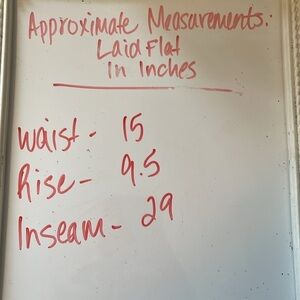 Approximate Measurements:
Laid Flat
In Inches
Waist - 15
Rise - 9.5
Inseam - 29